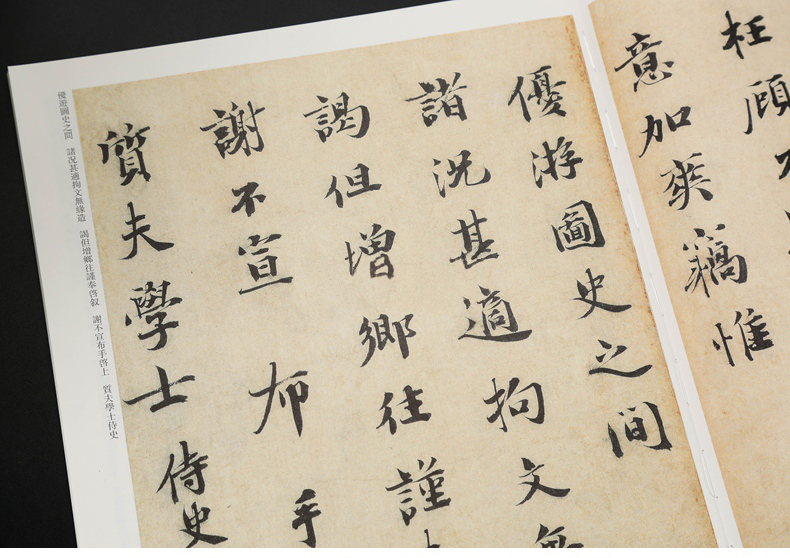 枉顧
意加爽竊惟
優游圖史之間
諸況甚適拘文無
謁但增鄉往謹
謝不宣 布手
質夫學士侍史
優遊圖史之間 諸況甚適拘文無緣造 謁但增鄉往謹奉啓叙 謝不宣布手啓上 質夫學士侍史